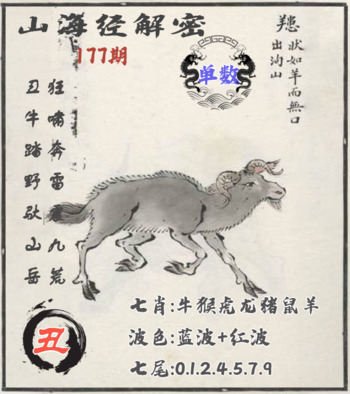 山海经解密
177期
单数
䍺
狀如羊而無口
出洵山
丑牛踏野山岳
狂啸奔雷九荒
丑
七肖:牛猴虎龙猪鼠羊
波色:蓝波+红波
七尾:0.1.2.4.5.7.9